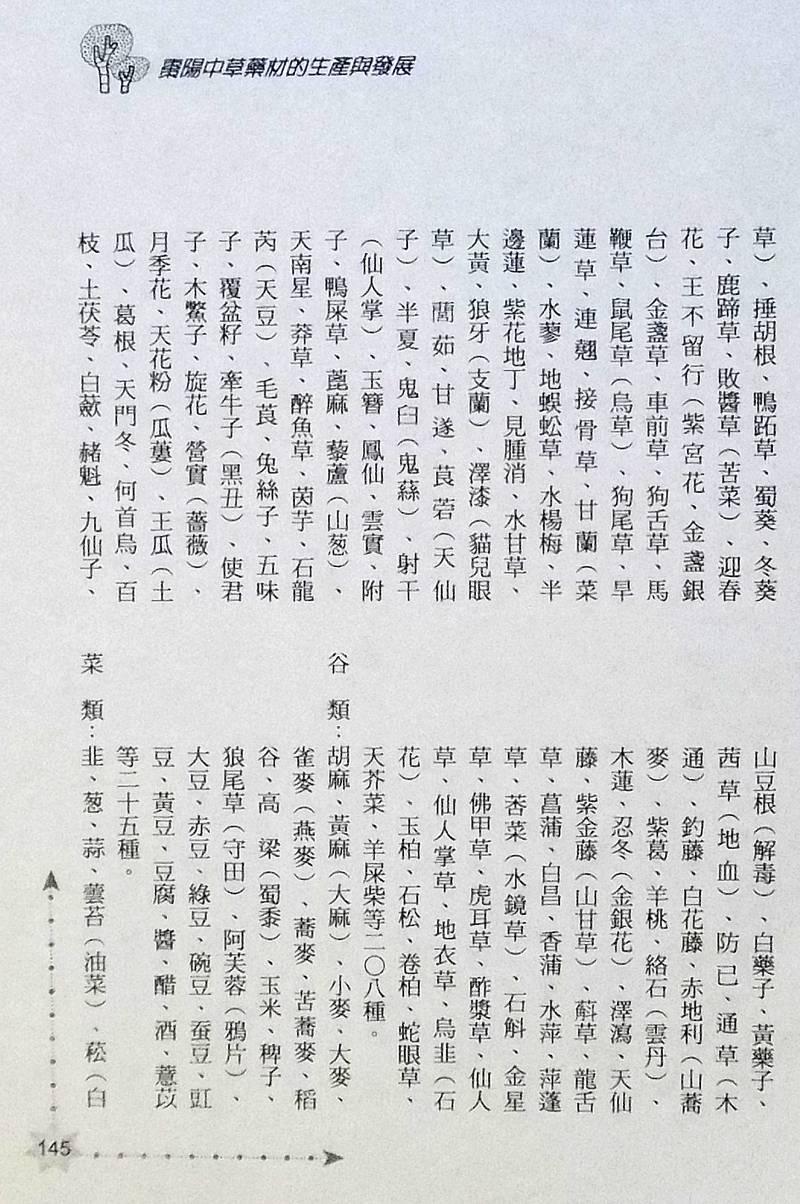 棗陽中草藥材的生產與發展
草）、捶胡根、鴨跖草、蜀葵、冬葵
子、鹿蹄草、敗醬草（苦菜）、迎春
花、王不留行（紫宮花、金盞銀
台）、金盞草、車前草、狗舌草、馬
鞭草、鼠尾草（烏草）、狗尾草、旱
蓮草、連翹、接骨草、甘蘭（菜
蘭）、水蓼、地蜈蚣草、水楊梅、半
邊蓮、紫花地丁、見腫消、水甘草、
大黃、狼牙（支蘭）、澤漆（貓兒眼
草）、藺茹、甘遂、莨菪（天仙
子）、半夏、鬼臼（鬼蕬）、射干
（仙人掌）、玉簪、鳳仙、雲實、附
子、鴨屎草、蓖麻、藜蘆（山葱）、
天南星、莽草、醉魚草、茵芋、石龍
芮（天豆）、毛莨、兔絲子、五味
子、覆盆籽、牽牛子（黑丑）、使君
子、木鱉子、旋花、營實（薔薇）、
月季花、天花粉（瓜蔞）、王瓜（土
瓜）、葛根、天門冬、何首烏、百
枝、土茯苓、白蘞、赭魁、九仙子、
山豆根（解毒）、白藥子、黃藥子、
茜草（地血）、防己、通草（木
通）、釣藤、白花藤、赤地利（山蕎
麥）、紫葛、羊桃、絡石（雲丹）、
木蓮、忍冬（金銀花）、澤瀉、天仙
藤、紫金藤（山甘草）、葪草、龍舌
草、菖蒲、白昌、香蒲、水萍、萍蓬
草、莕菜（水鏡草）、石斛、金星
草、佛甲草、虎耳草、酢漿草、仙人
草、仙人掌草、地衣草、烏韭（石
花）、玉柏、石松、卷柏、蛇眼草、
天芥菜、羊屎柴等二〇八種。
谷　類：胡麻、黃麻（大麻）、小麥、大麥、
雀麥（燕麥）、蕎麥、苦蕎麥、稻
谷、高　梁（蜀黍）、玉米、稗子、
狼尾草（守田）、阿芙蓉（鴉片）、
大豆、赤豆、綠豆、碗豆、蚕豆、豇
豆、黃豆、豆腐、醬、醋、酒、薏苡
等二十五種。
菜　類：韭、葱、蒜、蕓苔（油菜）、菘（白
145